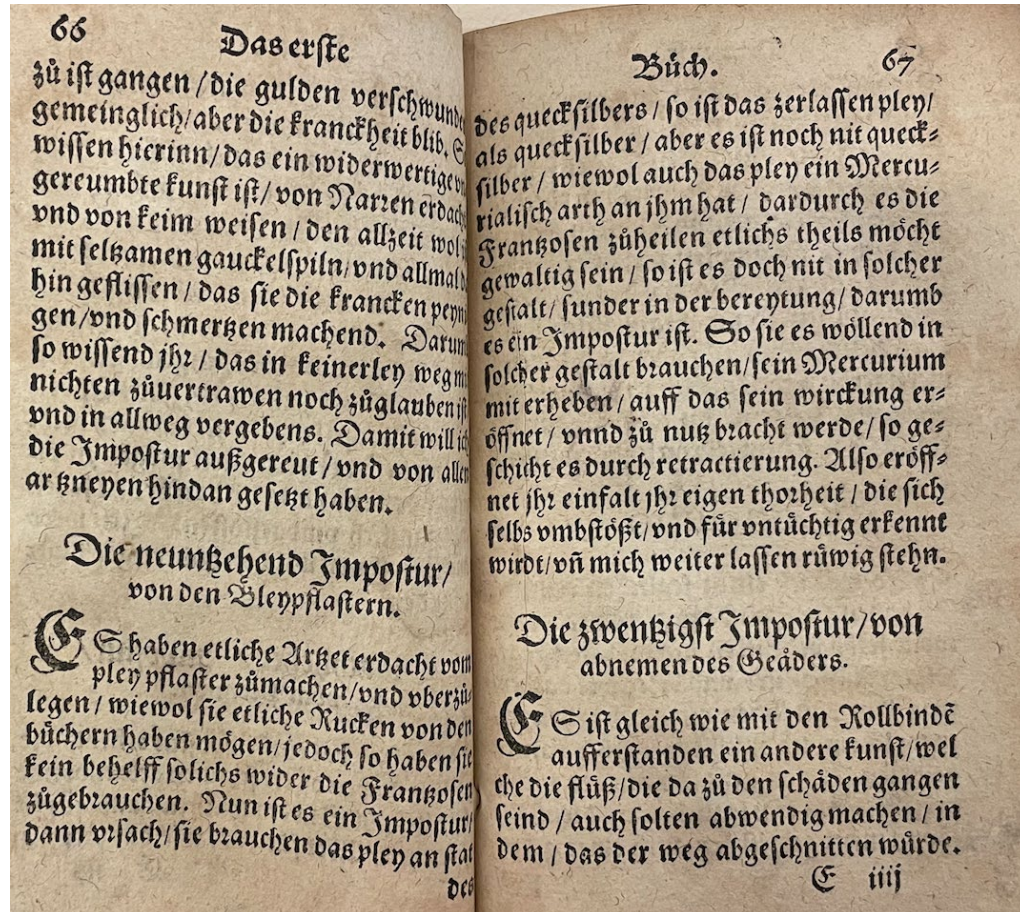 66
Das erste
zů ist gangen / die gulden verschwunde
gemeinglich / aber die kranckheit blib.
wissen hierinn / das ein widerwertige
gereumbte kunst ist / von Narren erdach
vnd von keim weisen / den allzeit wol
mit seltzamen gauckelspiln / vnd allmal
hin geflissen / das sie die krancken peyni
gen / vnd schmertzen machend. Darum
so wissend jhr / das in keinerley weg
nichten zůuertrawen noch zůglauben ist
vnd in allweg vergebens. Damit will ich
die Impostur außgereut / vnd von allen
artzneyen hindan gesetzt haben.
Die neuntzehend Impostur /
von den Bleypflastern.
ES haben etliche Artzet erdacht vom
pley pflaster zůmachen / vnd vberzů-
legen / wiewol sie etliche Rucken von den
bůchern haben mögen / jedoch so haben sie
kein behelff solichs wider die Frantzosen
zůgebrauchen. Nun ist es ein Impostur /
dann vrsach / sie brauchen das pley an stat
des
Bůch.
67
des quecksilbers / so ist das zerlassen pley /
als quecksilber / aber es ist noch nit queck-
silber / wiewol auch das pley ein Mercu-
rialisch arth an jhm hat / dardurch es die
Frantzosen zůheilen etlichs theils möcht
gewaltig sein / so ist es doch nit in solcher
gestalt / sunder in der bereytung / darumb
es ein Impostur ist. So sie es wöllend in
solcher gestalt brauchen / sein Mercurium
mit erheben / auff das sein wirckung er-
öffnet / vnnd zů nutz bracht werde / so ge-
schicht es durch retractierung. Also eröff-
net jhr einfalt jhr eigen thorheit / die sich
selbs vmbstößt / vnd für vntüchtig erkennt
wirdt / vñ mich weiter lassen růwig stehn.
Die zwentzigst Impostur / von
abnemen des Geåders.
ES ist gleich wie mit den Rollbindẽ
aufferstanden ein andere kunst / wel
che die flüß / die da zů den schäden gangen
seind / auch solten abwendig machen / in
dem / das der weg abgeschnitten würde.
E iiij